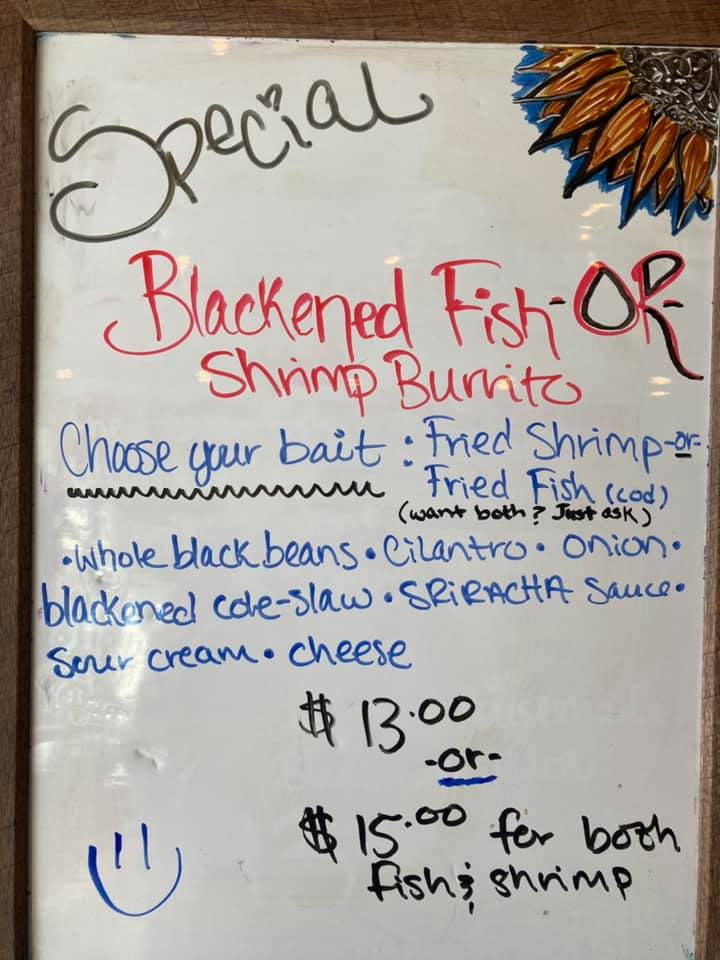 Special
Blackened Fish-OR-
Shrimp Burrito
Choose your bait : Fried Shrimp-or-
Fried Fish (cod)
(want both? Just ask)
• whole black beans • Cilantro • onion •
blackened cole-slaw • SRiRACHA Sauce •
Sour cream • cheese
$ 13.00
-or-
$ 15.00 for both
fish & shrimp